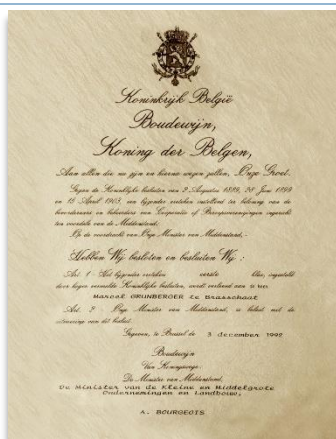 Koninkrijk België
Boudewijn,
Koning der Belgen,
Aan allen die nu zijn en hierna wezen zullen, Onze Groet.
Gezien de Koninklijke besluiten van 2 Augustus 1889, 20 Juni 1899
en 15 April 1903, een bijzonder ereteken instellend ter beloning van de
bevorderaars en beheerders van Coöperatie of Beroepsverenigingen ingericht
ten voordele van de Middenstand;
Op de voordracht van Onze Minister van Middenstand,
Hebben Wij besloten en besluiten Wij :
Art. 1 - Het bijzonder ereteken eerste klas, ingesteld
door hoger vermelde Koninklijke besluiten, wordt verleend aan de heer
Marcel GRUNBERGER te Brasschaat
Art. 2 - Onze Minister van Middenstand, is belast met de
uitvoering van dit besluit.
Gegeven, te Brussel de 3 december 1992
Boudewijn
Van Koningswege :
De Minister van Middenstand,
De Minister van de Kleine en Middelgrote
Ondernemingen en Landbouw,
A. BOURGEOIS